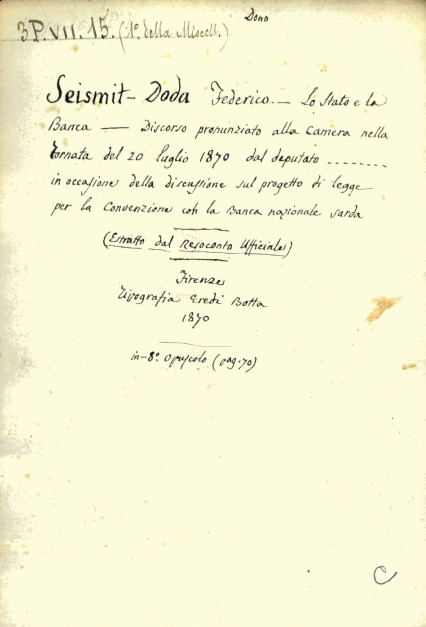 Dono
3P.VII.15. (1º. della Miscell.)
Seismit-Doda Federico. — Lo Stato e la
Banca — Discorso pronunziato alla Camera nella
tornata del 20 luglio 1870 dal deputato ........
in occasione della discussione sul progetto di legge
per la Convenzione con la Banca nazionale sarda
(Estratto dal Resoconto Ufficiale)
Firenze
Tipografia Eredi Botta
1870
in-8º opuscolo (pag. 70)
C